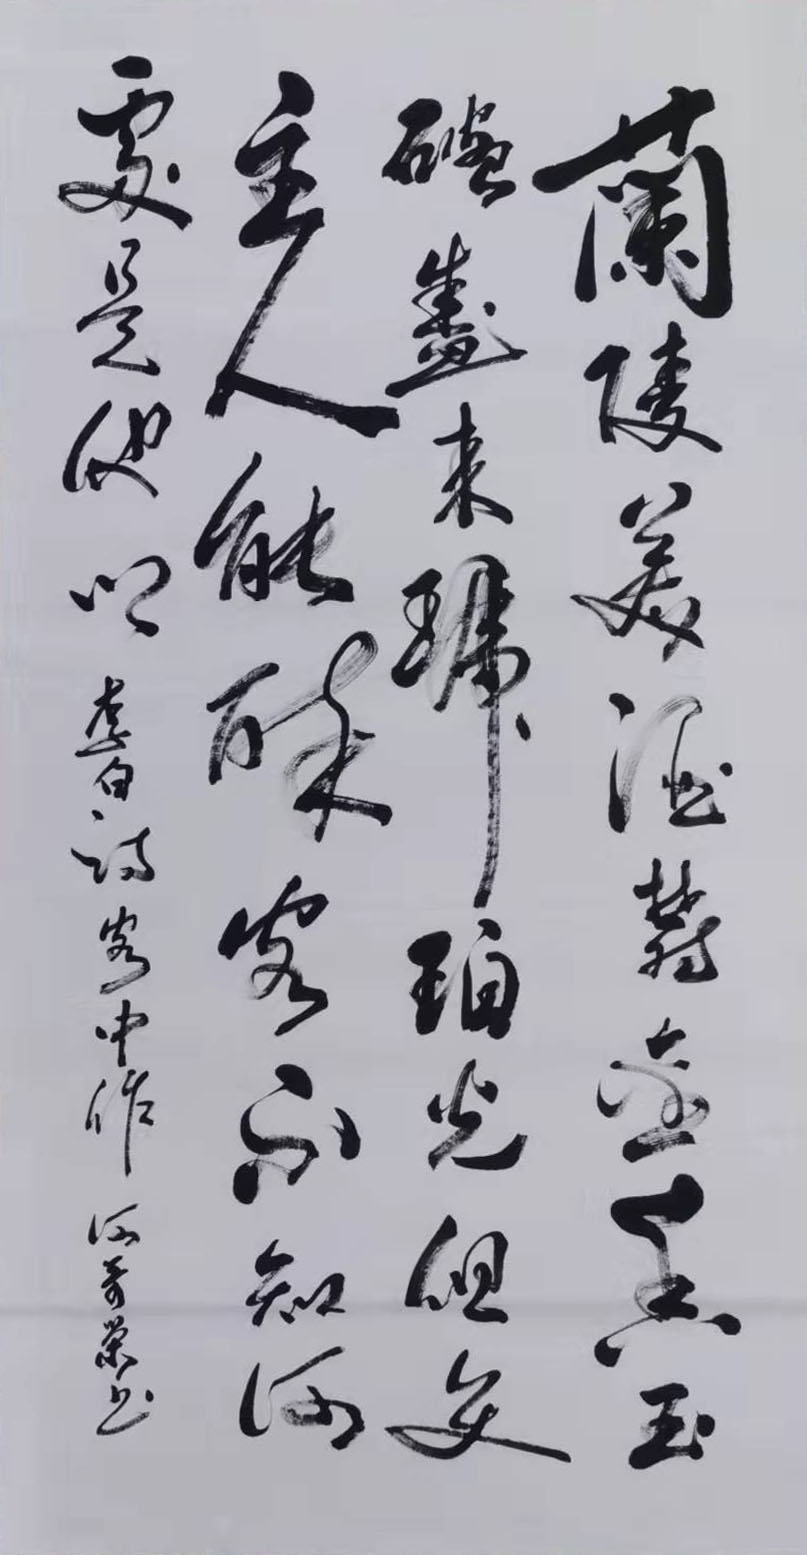 蘭陵美酒鬱金香玉
碗盛来琥珀光但使
主人能醉客不知何
處是他鄉 李白詩客中作 何奇荣书